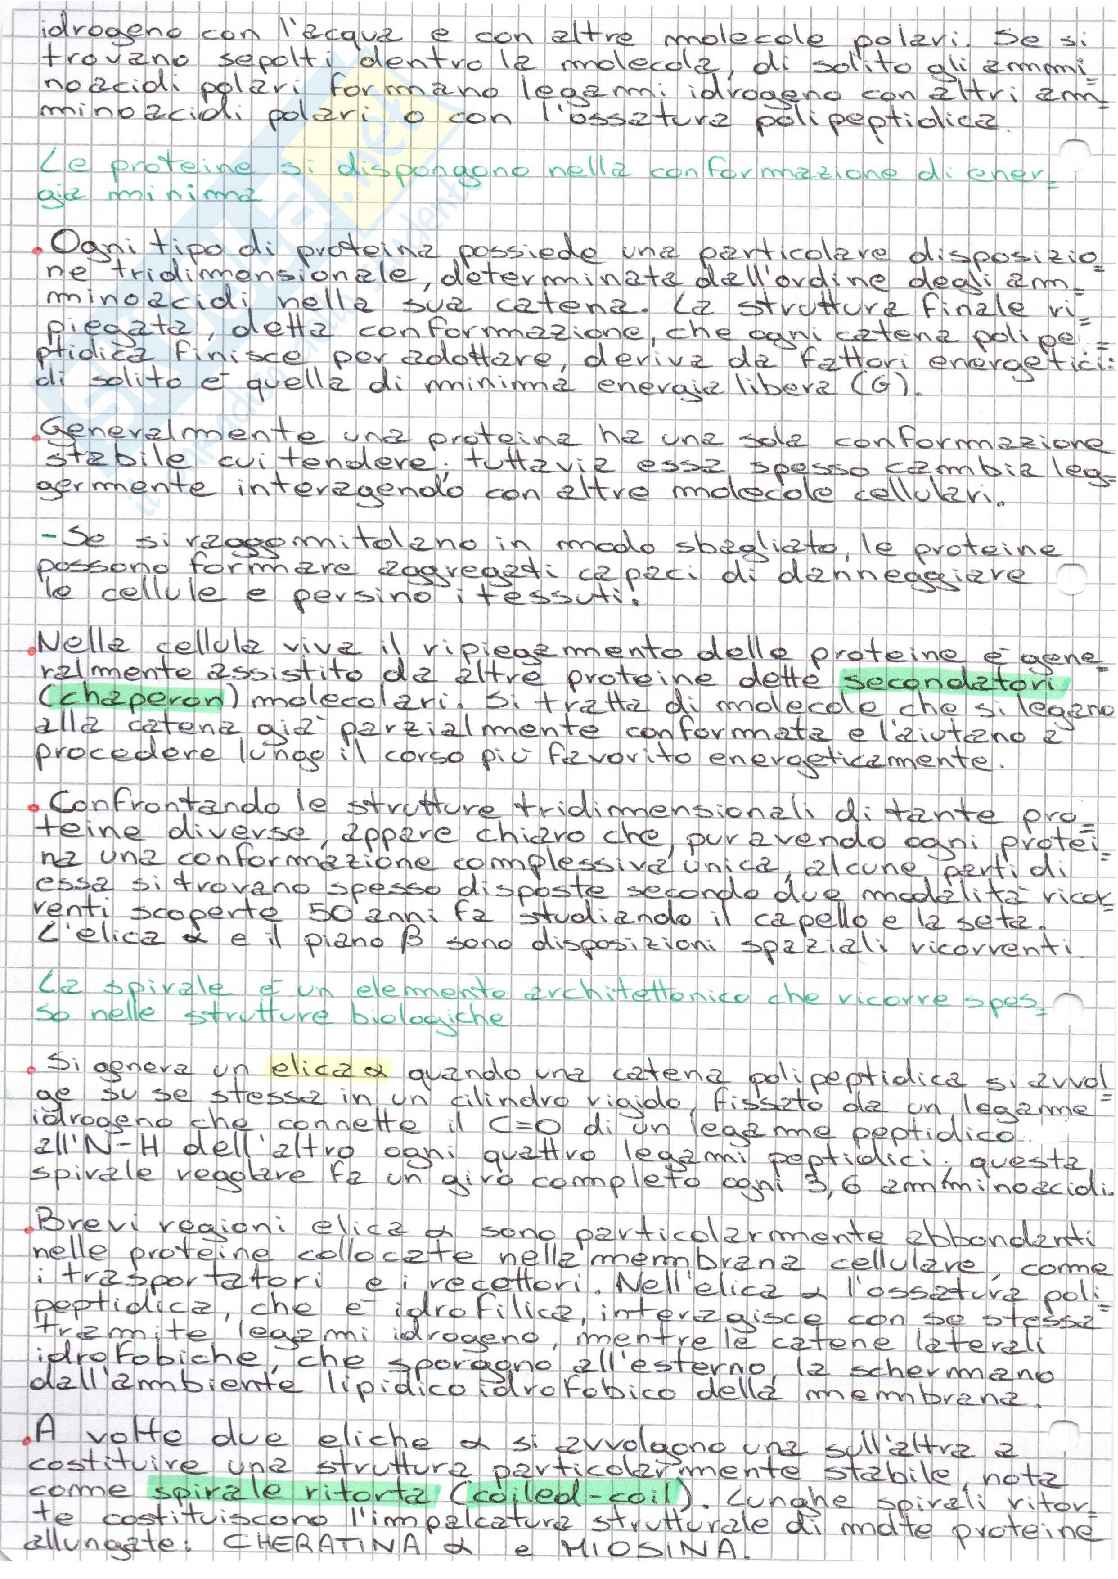 idrogeno con l'acqua e con altre molecole polari. Se si
trovano sepolti dentro la molecola, di solito gli ammi=
noacidi polari formano legami idrogeno con altri am=
minoacidi polari o con l'ossatura polipeptidica.
Le proteine si dispongono nella conformazione di ener=
gia minima
• Ogni tipo di proteina possiede una particolare disposizio=
ne tridimensionale, determinata dall'ordine degli am=
minoacidi nella sua catena. La struttura finale ri=
piegata, detta conformazione, che ogni catena polipe=
ptidica finisce per adottare, deriva da fattori energetici:
di solito è quella di minima energia libera (G).
• Generalmente una proteina ha una sola conformazione
stabile cui tendere; tuttavia essa spesso cambia leg=
germente interagendo con altre molecole cellulari.
- Se si raggomitolano in modo sbagliato, le proteine
possono formare aggregati capaci di danneggiare
le cellule e persino i tessuti!
• Nella cellula viva il ripiegamento delle proteine è gene=
ralmente assistito da altre proteine dette secondatori
(chaperon) molecolari. Si tratta di molecole che si legano
alla catena già parzialmente conformata e l'aiutano a
procedere lungo il corso più favorito energeticamente.
• Confrontando le strutture tridimensionali di tante pro=
teine diverse, appare chiaro che, pur avendo ogni protei=
na una conformazione complessiva unica, alcune parti di
essa si trovano spesso disposte secondo due modalità ricor=
renti scoperte 50 anni fa studiando il capello e la seta.
L'elica α e il piano β sono disposizioni spaziali ricorrenti.
La spirale è un elemento architettonico che ricorre spes=
so nelle strutture biologiche
• Si genera un elica α quando una catena polipeptidica si avvol=
ge su se stessa in un cilindro rigido, fissato da un legame
idrogeno che connette il C=O di un legame peptidico
all'N-H dell'altro ogni quattro legami peptidici; questa
spirale regolare fa un giro completo ogni 3,6 amminoacidi.
• Brevi regioni elica α sono particolarmente abbondanti
nelle proteine collocate nella membrana cellulare, come
i trasportatori e i recettori. Nell'elica α l'ossatura poli=
peptidica, che è idrofilica, interagisce con se stessa
tramite legami idrogeno, mentre le catene laterali
idrofobiche, che sporgono all'esterno, la schermano
dall'ambiente lipidico idrofobico della membrana.
• A volte due eliche α si avvolgono una sull'altra a
costituire una struttura particolarmente stabile, nota
come spirale ritorta (coiled-coil). Lunghe spirali ritor=
te costituiscono l'impalcatura strutturale di molte proteine
allungate: CHERATINA α e MIOSINA.